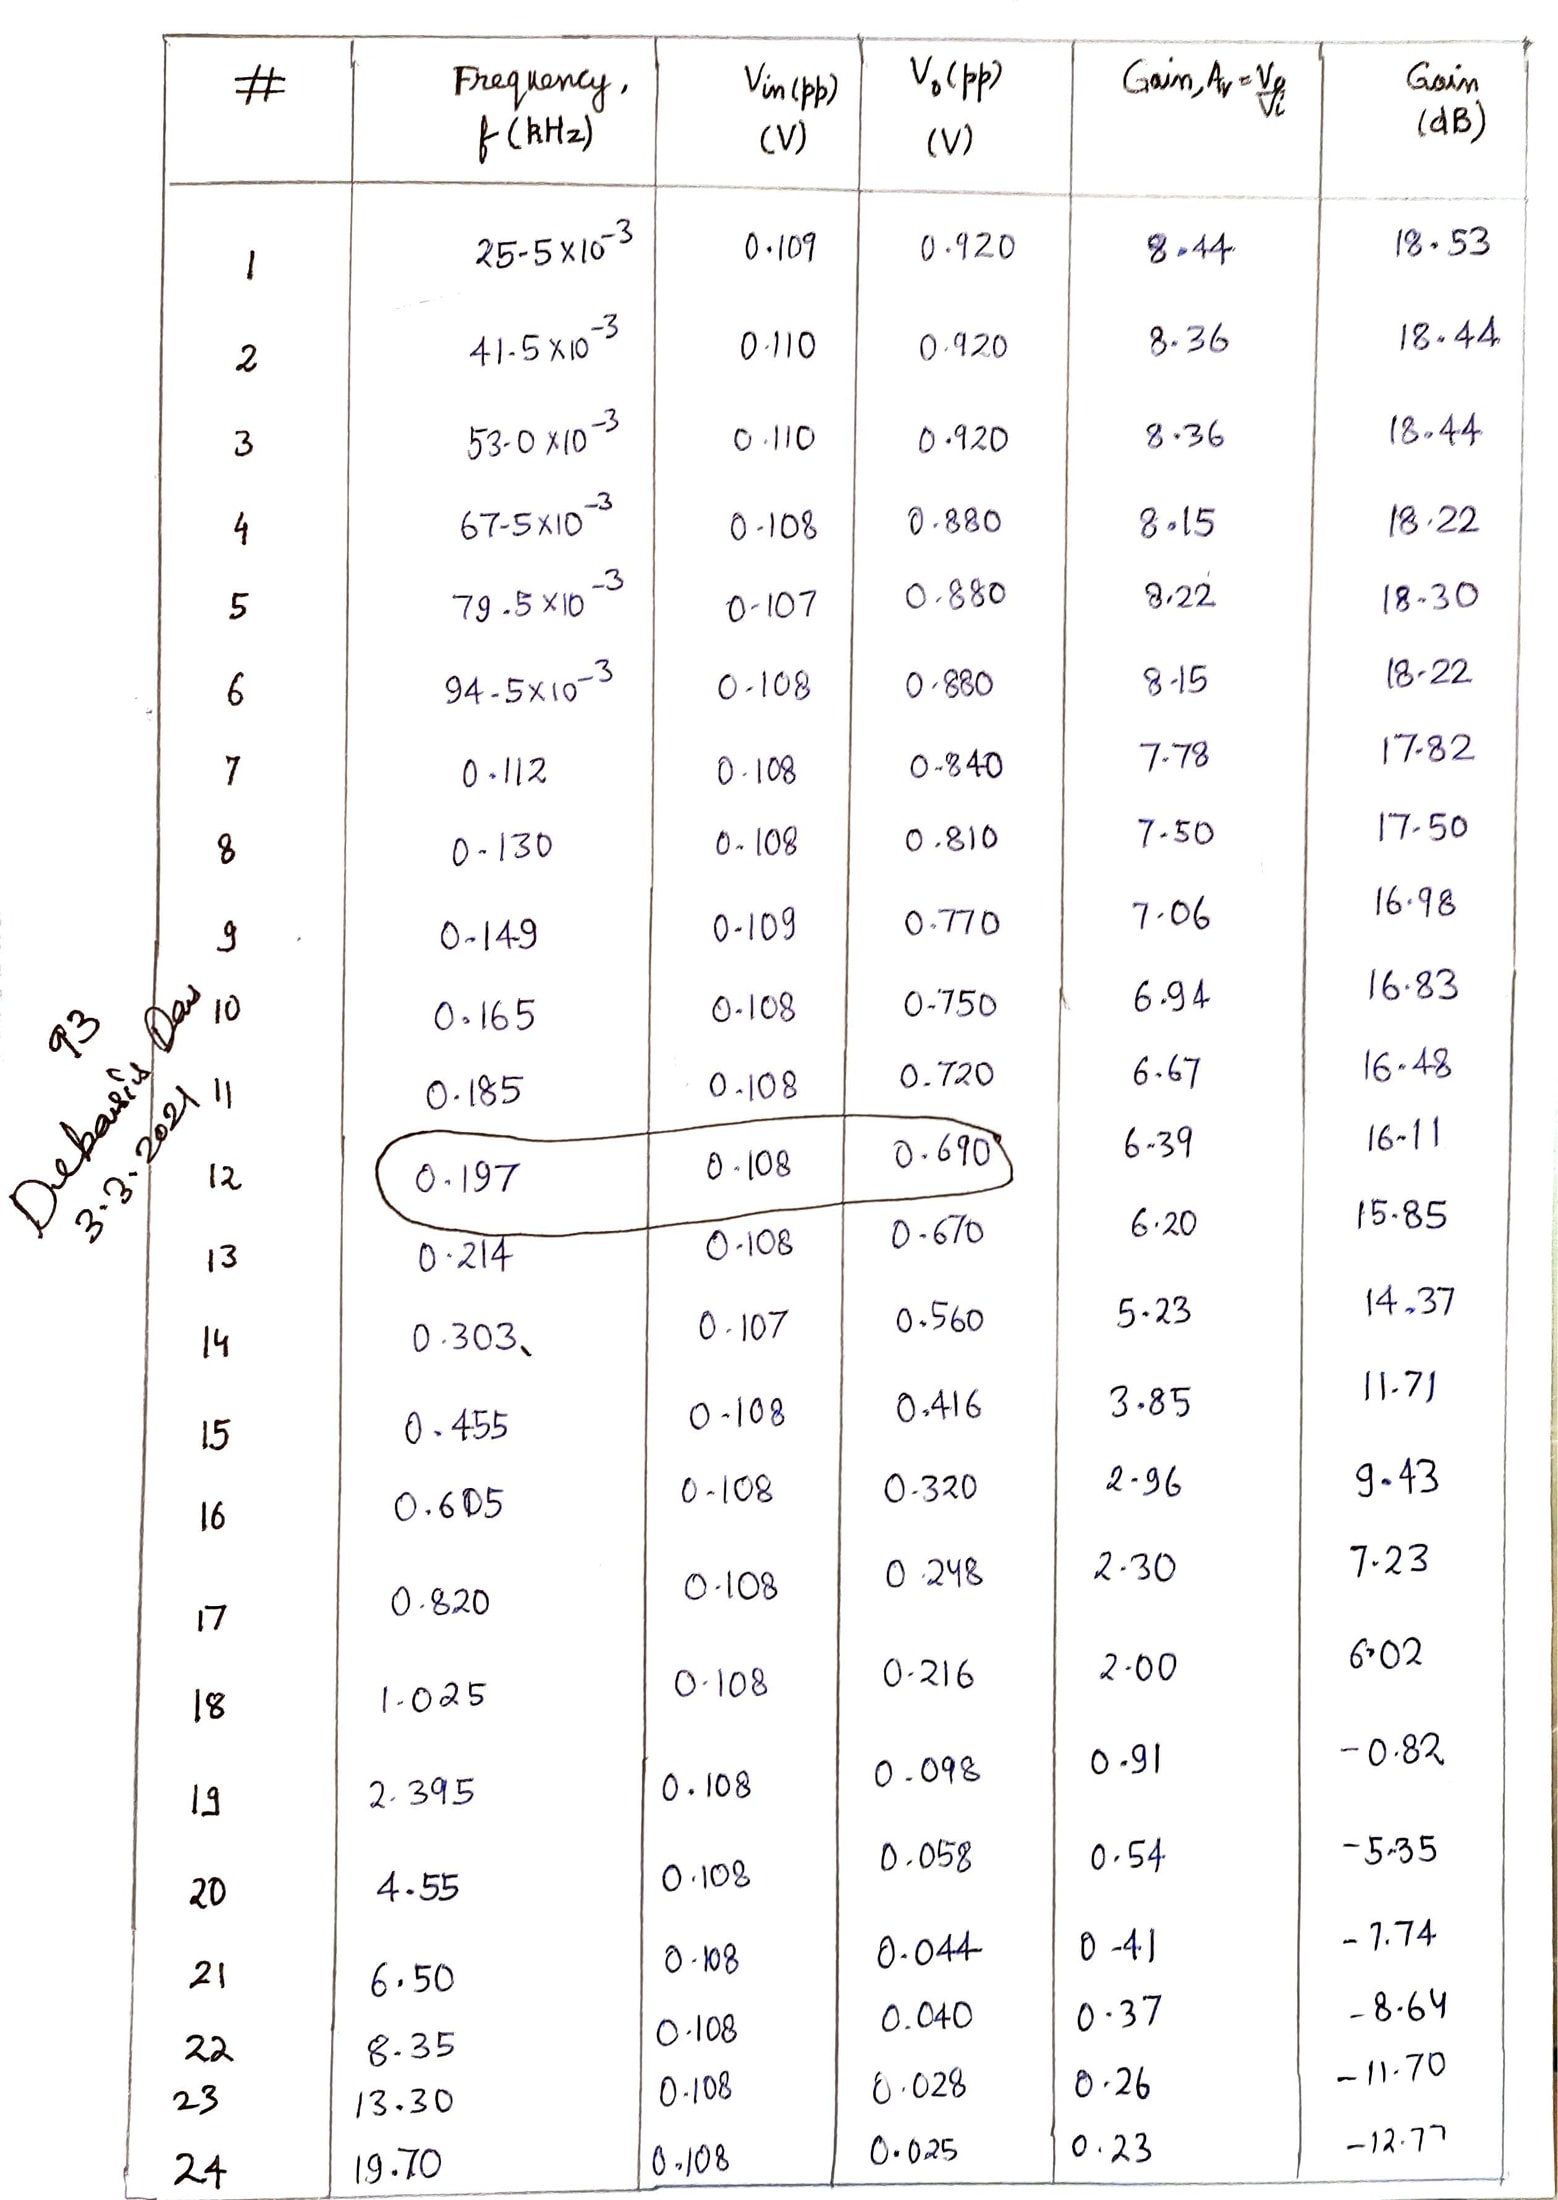 # Frequency, f (kHz) Vin (pp) (V) Vo (pp) (V) Gain, Av = Vo/Vi Gain (dB)
1 25.5 x 10^-3 0.109 0.920 8.44 18.53
2 41.5 x 10^-3 0.110 0.920 8.36 18.44
3 53.0 x 10^-3 0.110 0.920 8.36 18.44
4 67.5 x 10^-3 0.108 0.880 8.15 18.22
5 79.5 x 10^-3 0.107 0.880 8.22 18.30
6 94.5 x 10^-3 0.108 0.880 8.15 18.22
7 0.112 0.108 0.840 7.78 17.82
8 0.130 0.108 0.810 7.50 17.50
9 0.149 0.109 0.770 7.06 16.98
10 0.165 0.108 0.750 6.94 16.83
11 0.185 0.108 0.720 6.67 16.48
12 0.197 0.108 0.690 6.39 16.11
13 0.214 0.108 0.670 6.20 15.85
14 0.303 0.107 0.560 5.23 14.37
15 0.455 0.108 0.416 3.85 11.71
16 0.605 0.108 0.320 2.96 9.43
17 0.820 0.108 0.248 2.30 7.23
18 1.025 0.108 0.216 2.00 6.02
19 2.395 0.108 0.098 0.91 -0.82
20 4.55 0.108 0.058 0.54 -5.35
21 6.50 0.108 0.044 0.41 -7.74
22 8.35 0.108 0.040 0.37 -8.64
23 13.30 0.108 0.028 0.26 -11.70
24 19.70 0.108 0.025 0.23 -12.77
93
Debasis Das
3.3.2021